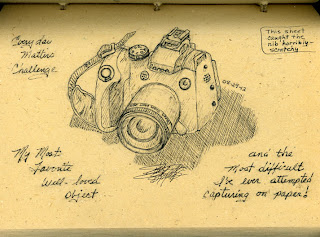 Every day
Matters
Challenge
This sheet
caught the
nib horribly-
Canon
08-09-12
My Most
Favorite
Well-loved
Object
and the
Most difficult
I've ever attempted
Capturing on paper!